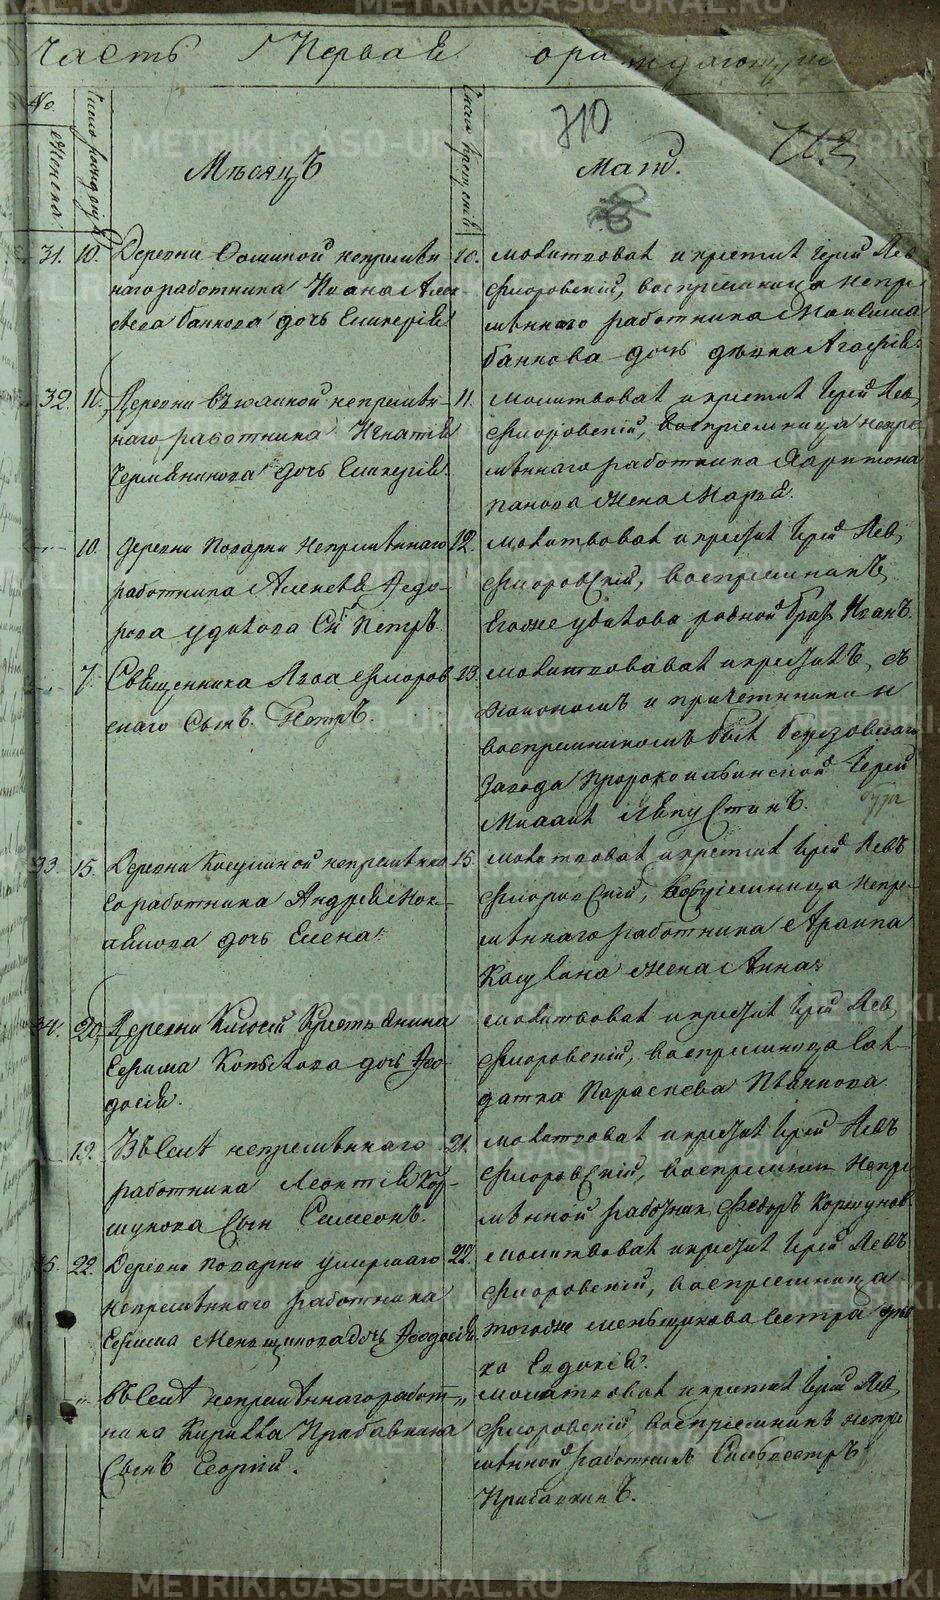 Часть Первая о раждающихся
№
женска
Число рожденія
Мѣсяцъ
Число крещенія
710
Май.
31. 10. Деревни Фоминой непремѣн
наго работника Ивана Алек
банкова дочь Гликерія.
10. молитвовалъ и крестилъ Іерей Лев
Флоровскій, воспріемница непре
мѣннаго работника Максима
банкова дочь дѣвка Агафія.
32. 11. Деревни непремѣн
наго работника Игнатія
Черемянинова дочь Гликерія.
11. молитвовалъ и крестилъ Іерей Лев,
Флоровскій, воспріемница непре
мѣннаго работника Харитона
панова жена Марѳа.
10. деревни Поварни Непремѣннаго
работника Алексѣя Ѳедо-
рова удилова Сынъ Петръ.
12. молитвовалъ и крестилъ Іерей Лев,
Флоровскій, воспріемникъ,
Егоже удилова родной братъ Иванъ.
7. Священника Льва Флоров
скаго Сынъ Петръ.
13. молитвовавалъ и крестилъ, съ
діакономъ и причетниками
воспріемникомъ былъ березовскаго
завода Пророкоильинской Іерей
Михаилъ
33. 15. Деревни Косулиной непремѣнна
го работника Андрея Мок-
дочь Елена.
15. молитвовалъ и крестилъ Іерей Левъ
Флоровскій, воспріемница Непре-
мѣннаго работника
Косулина жена Анна.
34. 20. Деревни Крестьянина
Ефима Копылова дочь Ѳео-
досія.
молитвовалъ и крестилъ Іерей Лев,
Флоровскій, воспріемница Сол-
датка Параскева Пьянкова.
19. Въ селѣ непремѣннаго
работника Леонтія Кор-
шунова Сын Симеонъ.
21. молитвовалъ и крестилъ Іерей Левъ
Флоровскій, воспріемник Непре
мѣнной работник Ѳедоръ Коршунов.
35. 22. Деревни Поварни умершаго
непремѣннаго работника
Ефима Меньщикова дочь Ѳеодосія.
22. молитвовалъ и крестилъ Іерей Левъ
Флоровскій, воспріемница
тогоже меньщикова сестра дѣв
ка Евдокія.
" въ селѣ непремѣннаго работ
ника Кирилла Прибавкина
Сынъ Георгій.
" молитвовалъ и крестилъ Іерей Лев,
Флоровскій, воспріемникъ непре
мѣнной работникъ Сильвестръ
Прибавкинъ.
METRIKI.GASO-URAL.RU